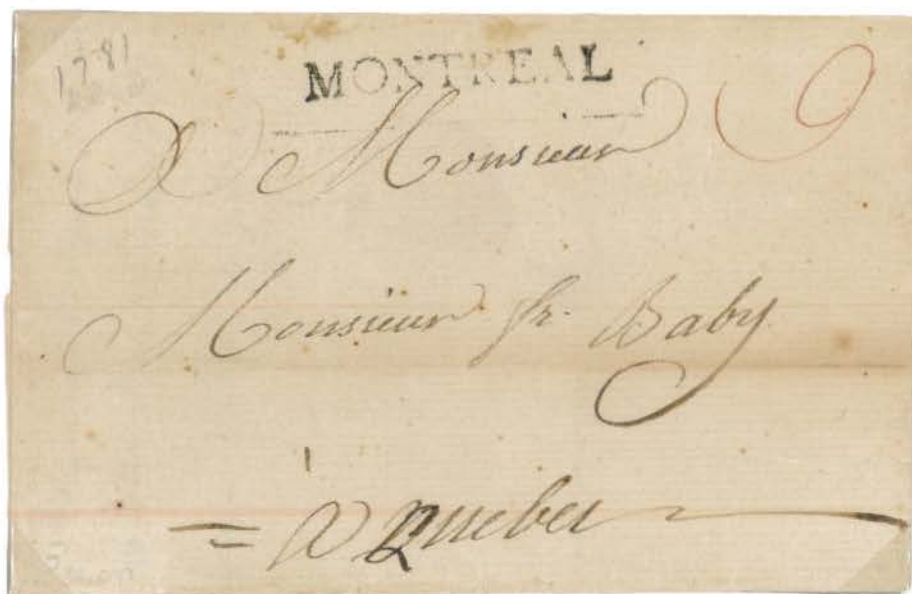 1781
MONTREAL
A Monsieur
9
Monsieur fr. Baby
= A Quebec